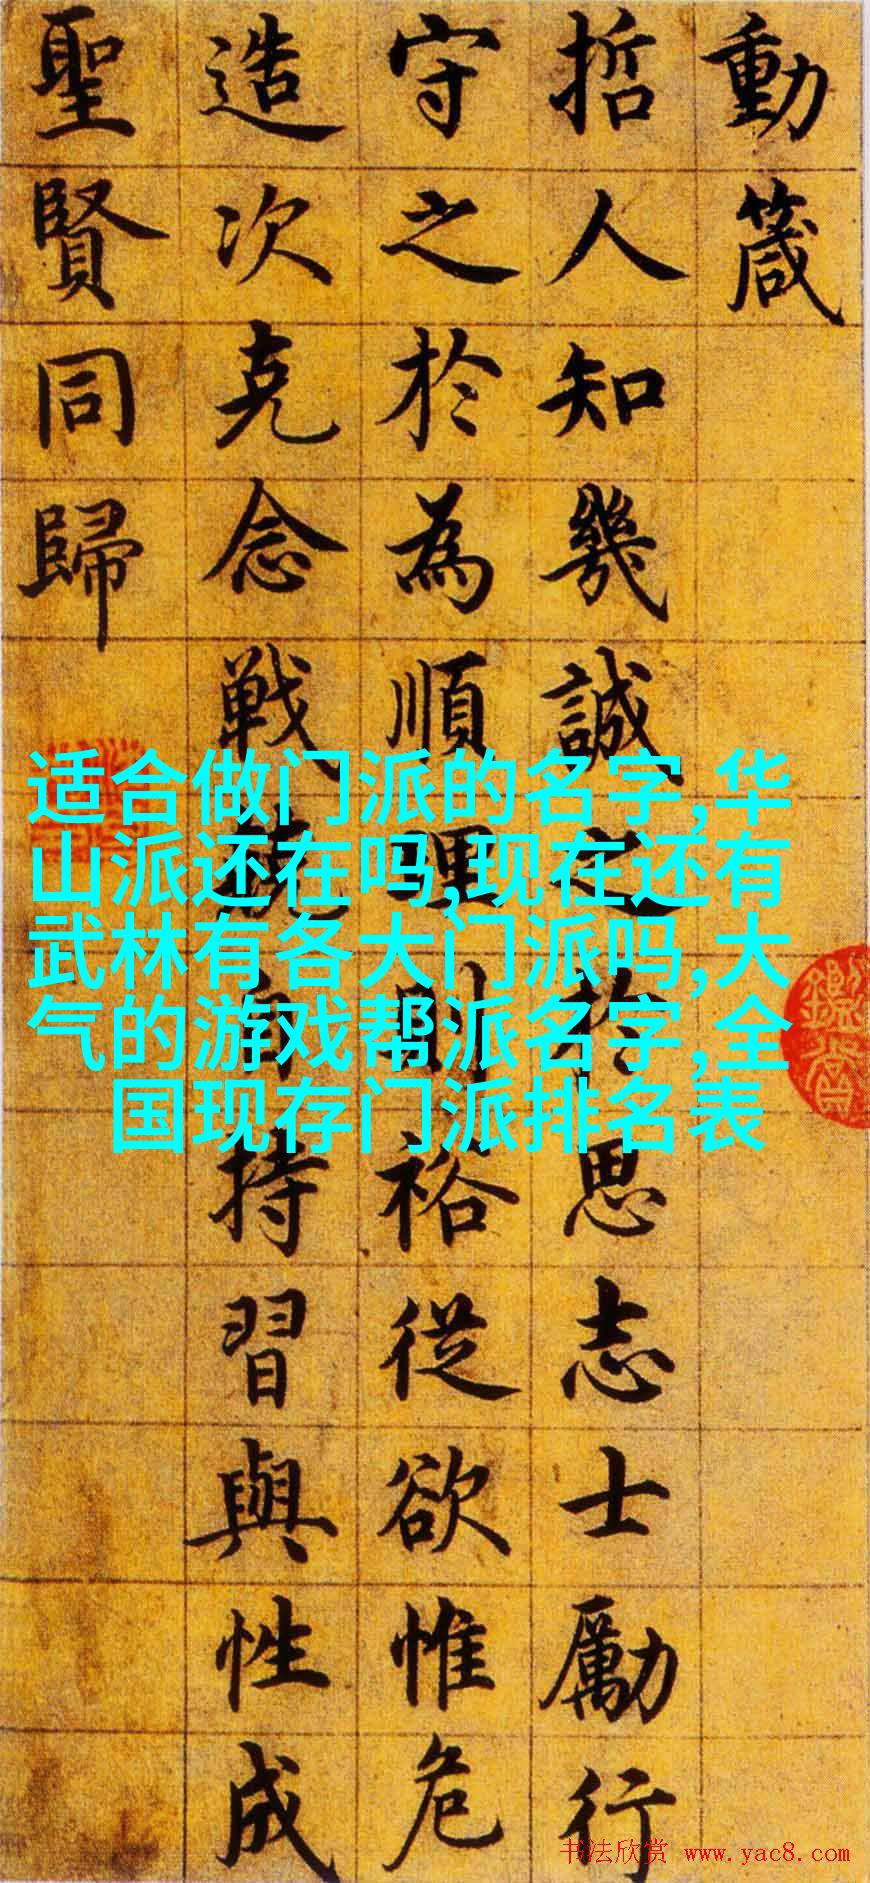 動箴
哲人知幾誠之於思志士勵行
守之於為順理則裕從欲惟危
造次克念戦兢自持習與性成
聖賢同歸
适合做门派的名字,华
山派还在吗,现在还有
武林有各大门派吗,大
气的游戏帮派名字,全
国现存门派排名表
书法欣赏 www.yac8.com